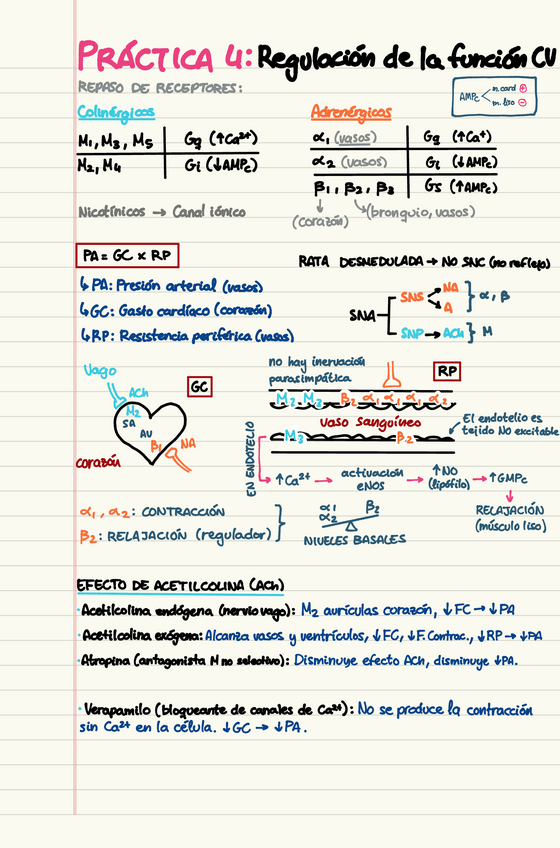 PRÁCTICA 4: Regulación de la función CV
REPASO DE RECEPTORES:
AMPc
m. card +
m. liso -
Colinérgicos
M1, M3, M5 Gq (↑Ca²⁺)
M2, M4 Gi (↓AMPc)
Nicotínicos → Canal iónico
Adrenérgicos
α1 (vasos) Gq (↑Ca⁺)
α2 (vasos) Gi (↓AMPc)
β1, β2, β3 Gs (↑AMPc)
(corazón) (bronquio, vasos)
PA = GC x RP
↳ PA: Presión arterial (vasos)
↳ GC: Gasto cardíaco (corazón)
↳ RP: Resistencia periférica (vasos)
RATA DESMEDULADA → NO SNC (no reflejo)
SNA
SNS NA
A
α, β
SNP → ACh } M
Vago
ACh
GC
M2
SA
AV
β1 NA
corazón
no hay inervación
parasimpática
RP
M2 M3 β2 α1 α1 α1 α2
vaso sanguíneo
M3 β2
El endotelio es
tejido NO excitable
EN ENDOTELIO
↑Ca²⁺ → activación eNOS → ↑NO (lipófilo) → ↑GMPc
RELAJACIÓN
(músculo liso)
α1, α2: CONTRACCIÓN
β2: RELAJACIÓN (regulador)
α1
α2
β2
NIVELES BASALES
EFECTO DE ACETILCOLINA (ACh)
· Acetilcolina endógena (nervio vago): M2 aurículas corazón, ↓FC → ↓PA
· Acetilcolina exógena: Alcanza vasos y ventrículos, ↓FC, ↓F. Contrac., ↓RP → ↓PA
· Atropina (antagonista M no selectivo): Disminuye efecto ACh, disminuye ↓PA.
· Verapamilo (bloqueante de canales de Ca²⁺): No se produce la contracción
sin Ca²⁺ en la célula. ↓GC → ↓PA.